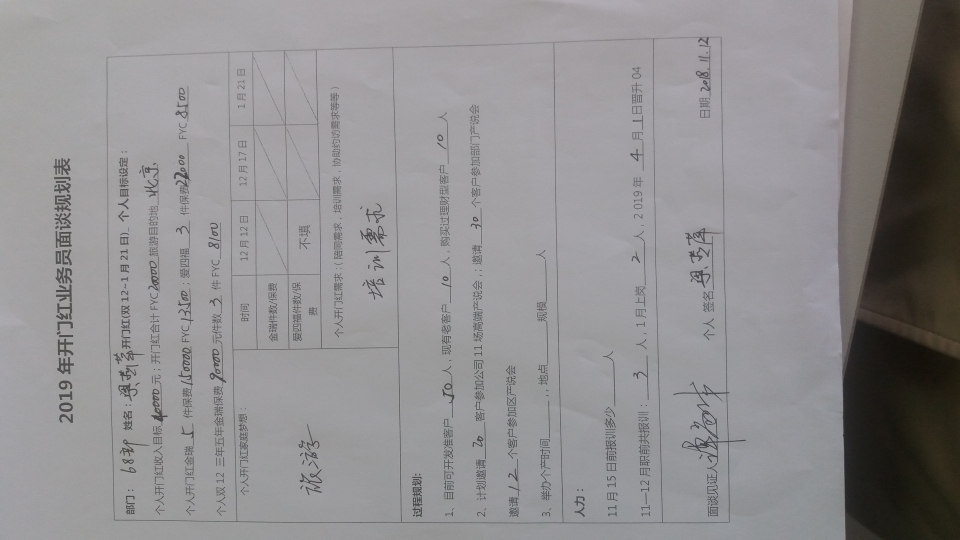 2019 年开门红业务员面谈规划表
部门： 68部 姓名： 开门红(双 12~1 月 21 日)、个人目标设定：
个人开门红收入目标 40000 元；开门红合计 FYC 20000 旅游目的地 北京
个人开门红金瑞 5 件保费 150000 FYC 13500；爱四福 3 件保费 22000 FYC 8500
个人双 12 三年五年金瑞保费 90000 元件数 3 件 FYC 8100
个人开门红家庭梦想：
旅游
时间 12 月 12 日 12 月 17 日 1 月 21 日
金瑞件数/保费
爱四福件数/保费 不填
个人开门红需求：（陪同需求，培训需求，协助约访需求等等）
培训需求
过程规划:
1、目前可开发准客户 50 人，现有老客户 10 人、购买过理财型客户 10 人
2、计划邀请 20 客户参加公司 11 场高端产说会，；邀请 30 个客户参加部门产说会
邀请 12 个客户参加区产说会
3、举办个产时间 ，；地点 规模 人
人力：
11 月 15 日前报训多少 人
11—12 月职前共报训： 3 人，1 月上岗 2 人，2 019 年 4 月 1 日晋升 04
面谈见证人 个人 签名 日期 2018.11.12